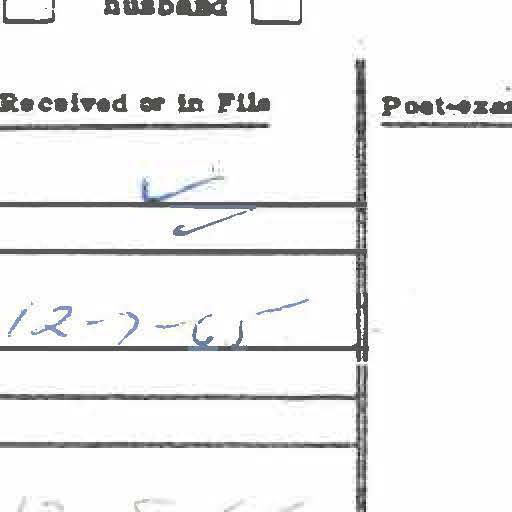 husband
Received or in File
Post-exam
12-7-65